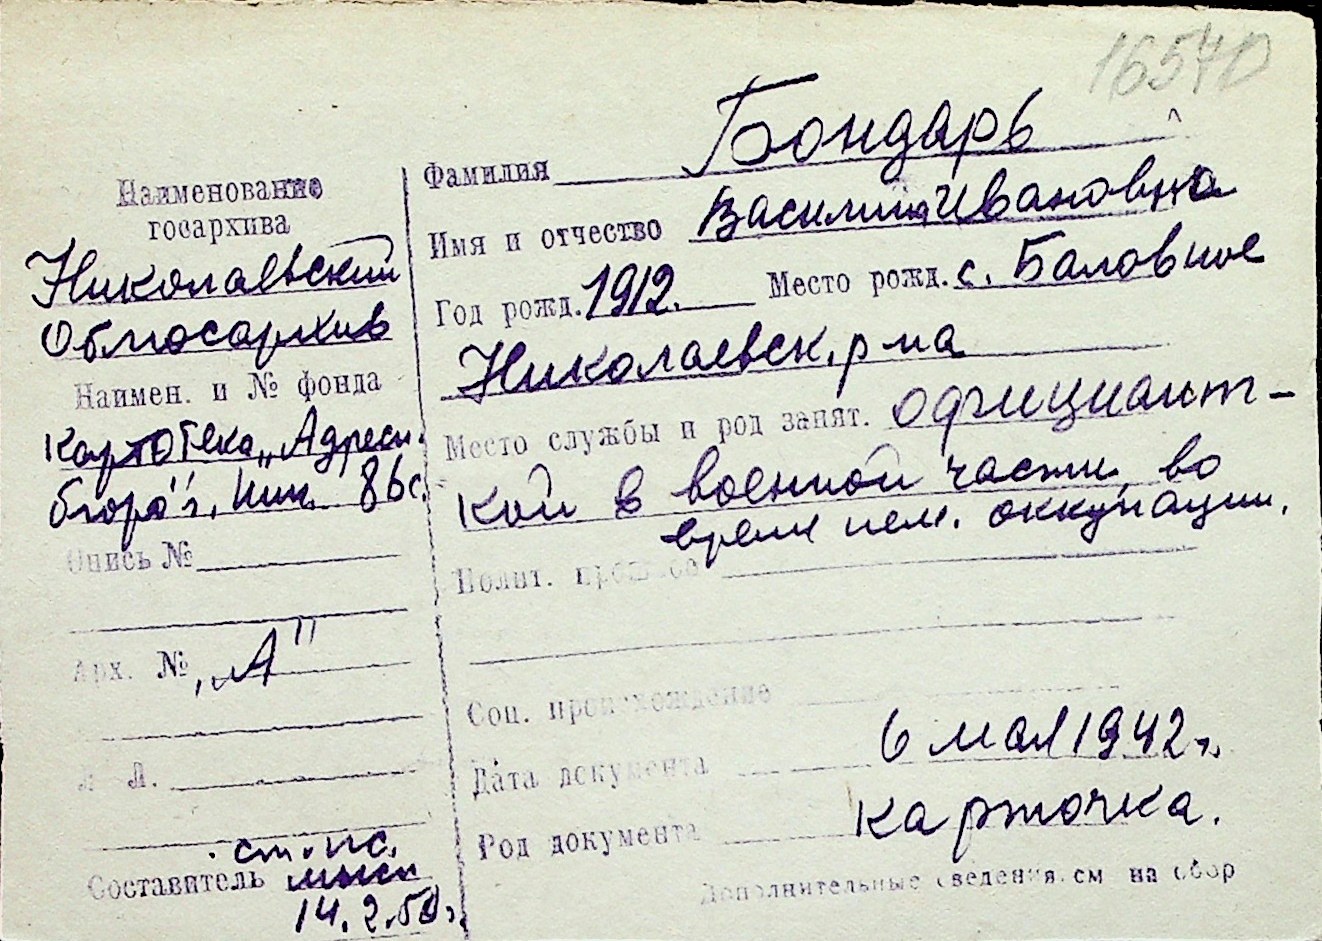 16570
Наименование
госархива
Николаевский
Облгосархив
Наимен. и № фонда
картотека „Адресн.
бюро" г. Ник. 86с.
Опись №
Арх. № „А"
Л. Л.
ст. ис.
Составитель
14.2.50 г.
Фамилия Бондарь
Имя и отчество Василиса Ивановна
Год рожд. 1912. Место рожд. с. Баловное
Николаевск. р-на
Место службы и род занят. официант-
кой в военной части во
время нем. оккупации.
Полит. прошлое
Соц. происхождение
Дата документа 6 мая 1942 г.
Род документа карточка.
Дополнительные сведения см на обор